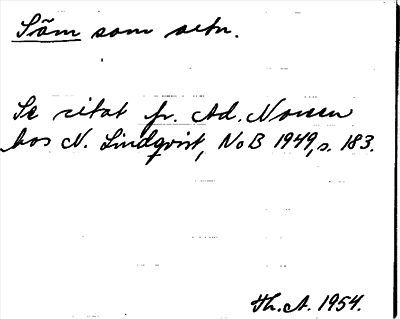 Såm som ortn.
Se citat fr. Ad. Noreen
hos N. Lindqvist, NoB 1949, s. 183.
Th. A. 1954.